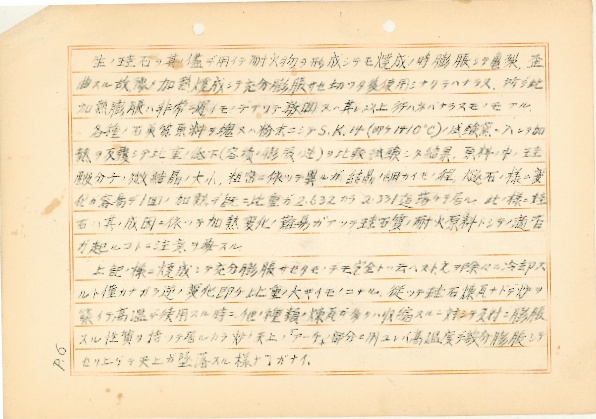 生ノ珪石ヲ其儘デ用イテ耐火物ヲ形成シテモ焼成ノ時膨脹シテ亀裂、歪
曲スル故豫メ加熱焼成シテ充分膨脹サセ切ッタ後使用シナケレバナラヌ、所ガ此
加熱膨脹ハ非常ニ遅イモノデアリテ数回又ハ其レ以上行ハネバナラヌモノモアル、
各種ノ石英質原料ヲ塊又ハ粉末ニシテ S.K.14 (即チ1410°C)ノ試験窯ニ入レテ加
熱ヲ反覆シテ比重ノ低下(容積ノ膨脹 )ヲ比較試験シタ結果、原料ノ中ノ珪
酸分子ノ微結晶ノ大小、粗密ニ依ッテ異ルガ結晶ノ細カイモノ程、燧石ノ様ニ変
化ガ容易デ1回ノ加熱デ既ニ比重ガ2.632カラ2.331迄落チテ居ル、此ノ様ニ珪
石ハ其ノ成因ニ依ッテ加熱変化ノ難易ガアッテ珪石質ノ耐火原料トシテノ適否
ガ起ルコトニ注意ヲ要スル
上記ノ様ニ焼成シテ充分膨脹サセタモノデモ完全ト云ハレヌ 冷却ス
ルト僅カナガラ逆ノ変化即チ比重ノ大キイモノニナル、従ッテ珪石煉瓦ナドデ炉ヲ
築イテ高温デ使用スル時ニ他ノ種類ノ煉瓦ガ多少ハ収縮スルニ対シテ反対ニ膨脹
スル性質ヲ持ッテ居ルカラ炉ノ天上ノ「アーチ」部分ニ用ユレバ高温度デ幾分膨脹シテ
セリ上ゲテ天上ガ墜落スル様ナコトガナイ、
P.5